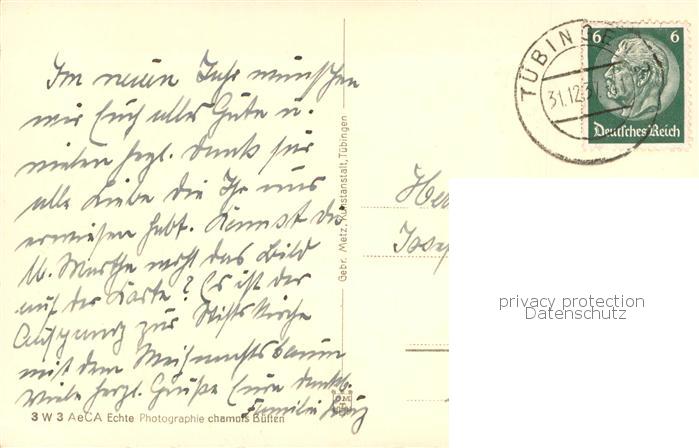 Im neuen Jahr wünschen
wir Euch alles Gute u.
vielen hrzl. Dank für
alle Liebe die Ihr uns
erwiesen habt. Kennst du
lb. Martha noch das Bild
auf der Karte? Es ist der
Aufgang zur Stiftskirche
mit dem Weihnachtsbaum
Viele herzl. Grüße Eure dankb.
Familie
3 W 3 AeCA Echte Photographie chamois Bütten
Gebr. Metz, Kunstanstalt, Tübingen
TÜBINGEN
31.12.37
6 6
Deutsches Reich
Josef
privacy protection
Datenschutz